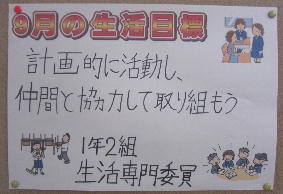 9月の生活目標
計画的に活動し、
仲間と協力して取り組もう
1年2組
生活専門委員